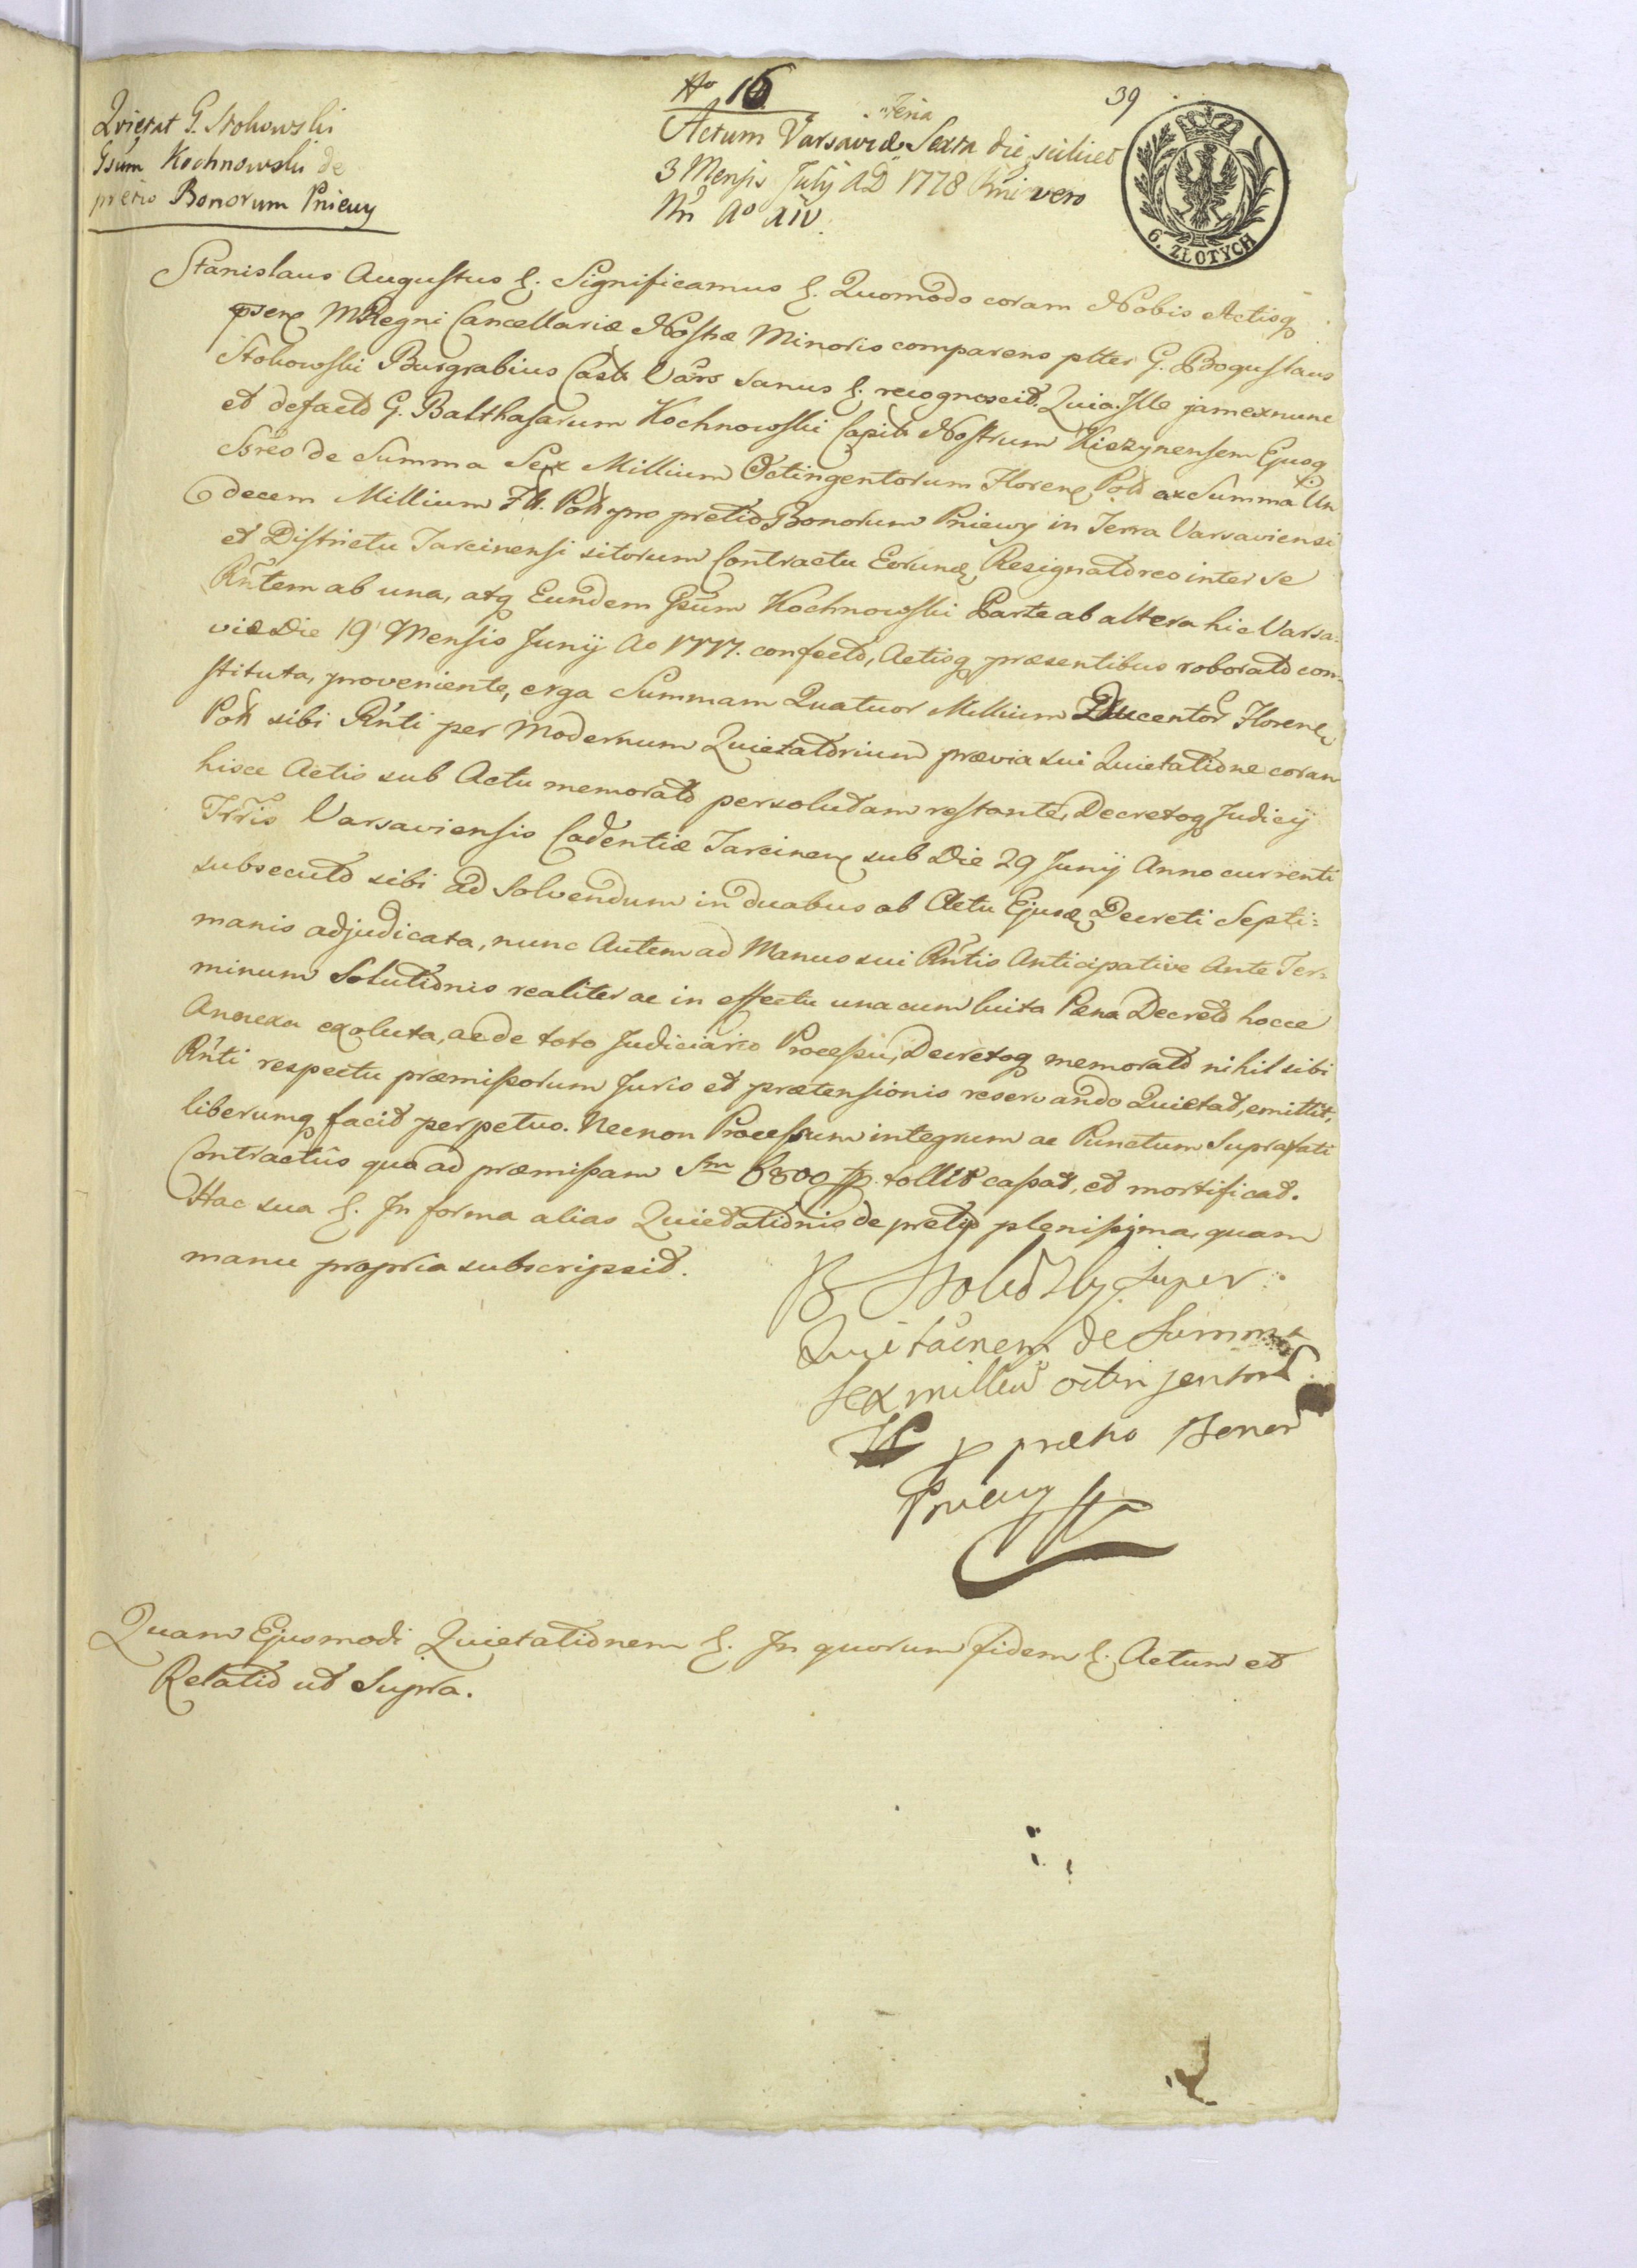 No 16
39
Quietat G. Stokowski
Gsum Kochnowski de
pretio Bonorum Pniewy
Feria
Actum Varsaviæ Sexta die scilicet
3 Mensis July AD 1778 Rni vero
Nri Ao XIV.
6. ZŁOTYCH
Stanislaus Augustus &. Significamus &. Quomodo coram Nobis Actisq
psen MRegni Cancellariæ Nostræ Minoris comparens pltter G. Boguslaus
Stokowski Burgrabius Castr Vars sanus &. recognoscit. Quia Ille jam ex nunc
et de facto G. Balthasarum Kochnowski Capit Nostrum Kiszynensem Ejusq
Sbreo de Summa Sex Millium Octingentorum Floren Poll ex Summa Un
decem Millium Fl. Poll pro pretio Bonorum Pniewy in Terra Varsaviensi
et Districtu Tarcinensi sitorum Contractu Eorund Resignatoreo inter se
Rntem ab una, atq Eundem Gsum Kochnowski Parte ab altera hic Varsa-
viæ Die 19 Mensis Junij Ao 1777. confecto, Actisq præsentibus roborato con-
stituta, proveniente, erga Summam Quatuor Millium Ducentor Floren
Poll sibi Rnti per Modernum Quietatorium prævia sui Quietatione coram
hisce Actis sub Actu memorato persolutam restante, Decretoq Judicij
Trris Varsaviensis Cadentiæ Tarcinen sub Die 29 Junij Anno currenti
subsecuto sibi ad Solvendum in duabus ab Actu Ejusd Decreti Septi-
manis adjudicata, nunc Autem ad Manus sui Rntis Anticipative Ante Ter-
minum Solutionis realiter ac in effectu una cum luita Pæna Decreto hocce
Annexa exoluta, ac de toto Judiciario Processu, Decretoq memorato nihil sibi
Rnti respectu præmissorum Juris et prætensionis reservando Quietat, emittit,
liberumq facit perpetuo. Necnon Processum integrum ac Punctum Suprafati
Contractûs quo ad præmissam Sm 6800 fp. tollit cassat, et mortificat.
Hac sua &. In forma alias Quietationis de pretijo plenissima, quam
manu propria subscripsit.
B Stokowsky super
Quitacinem de Summa
Sex milleu octin jentor
p prætio Bonor
Pniewy
Quam Ejusmodi Quietationem &. In quorum fidem &. Actum et
Relatio ut Supra.